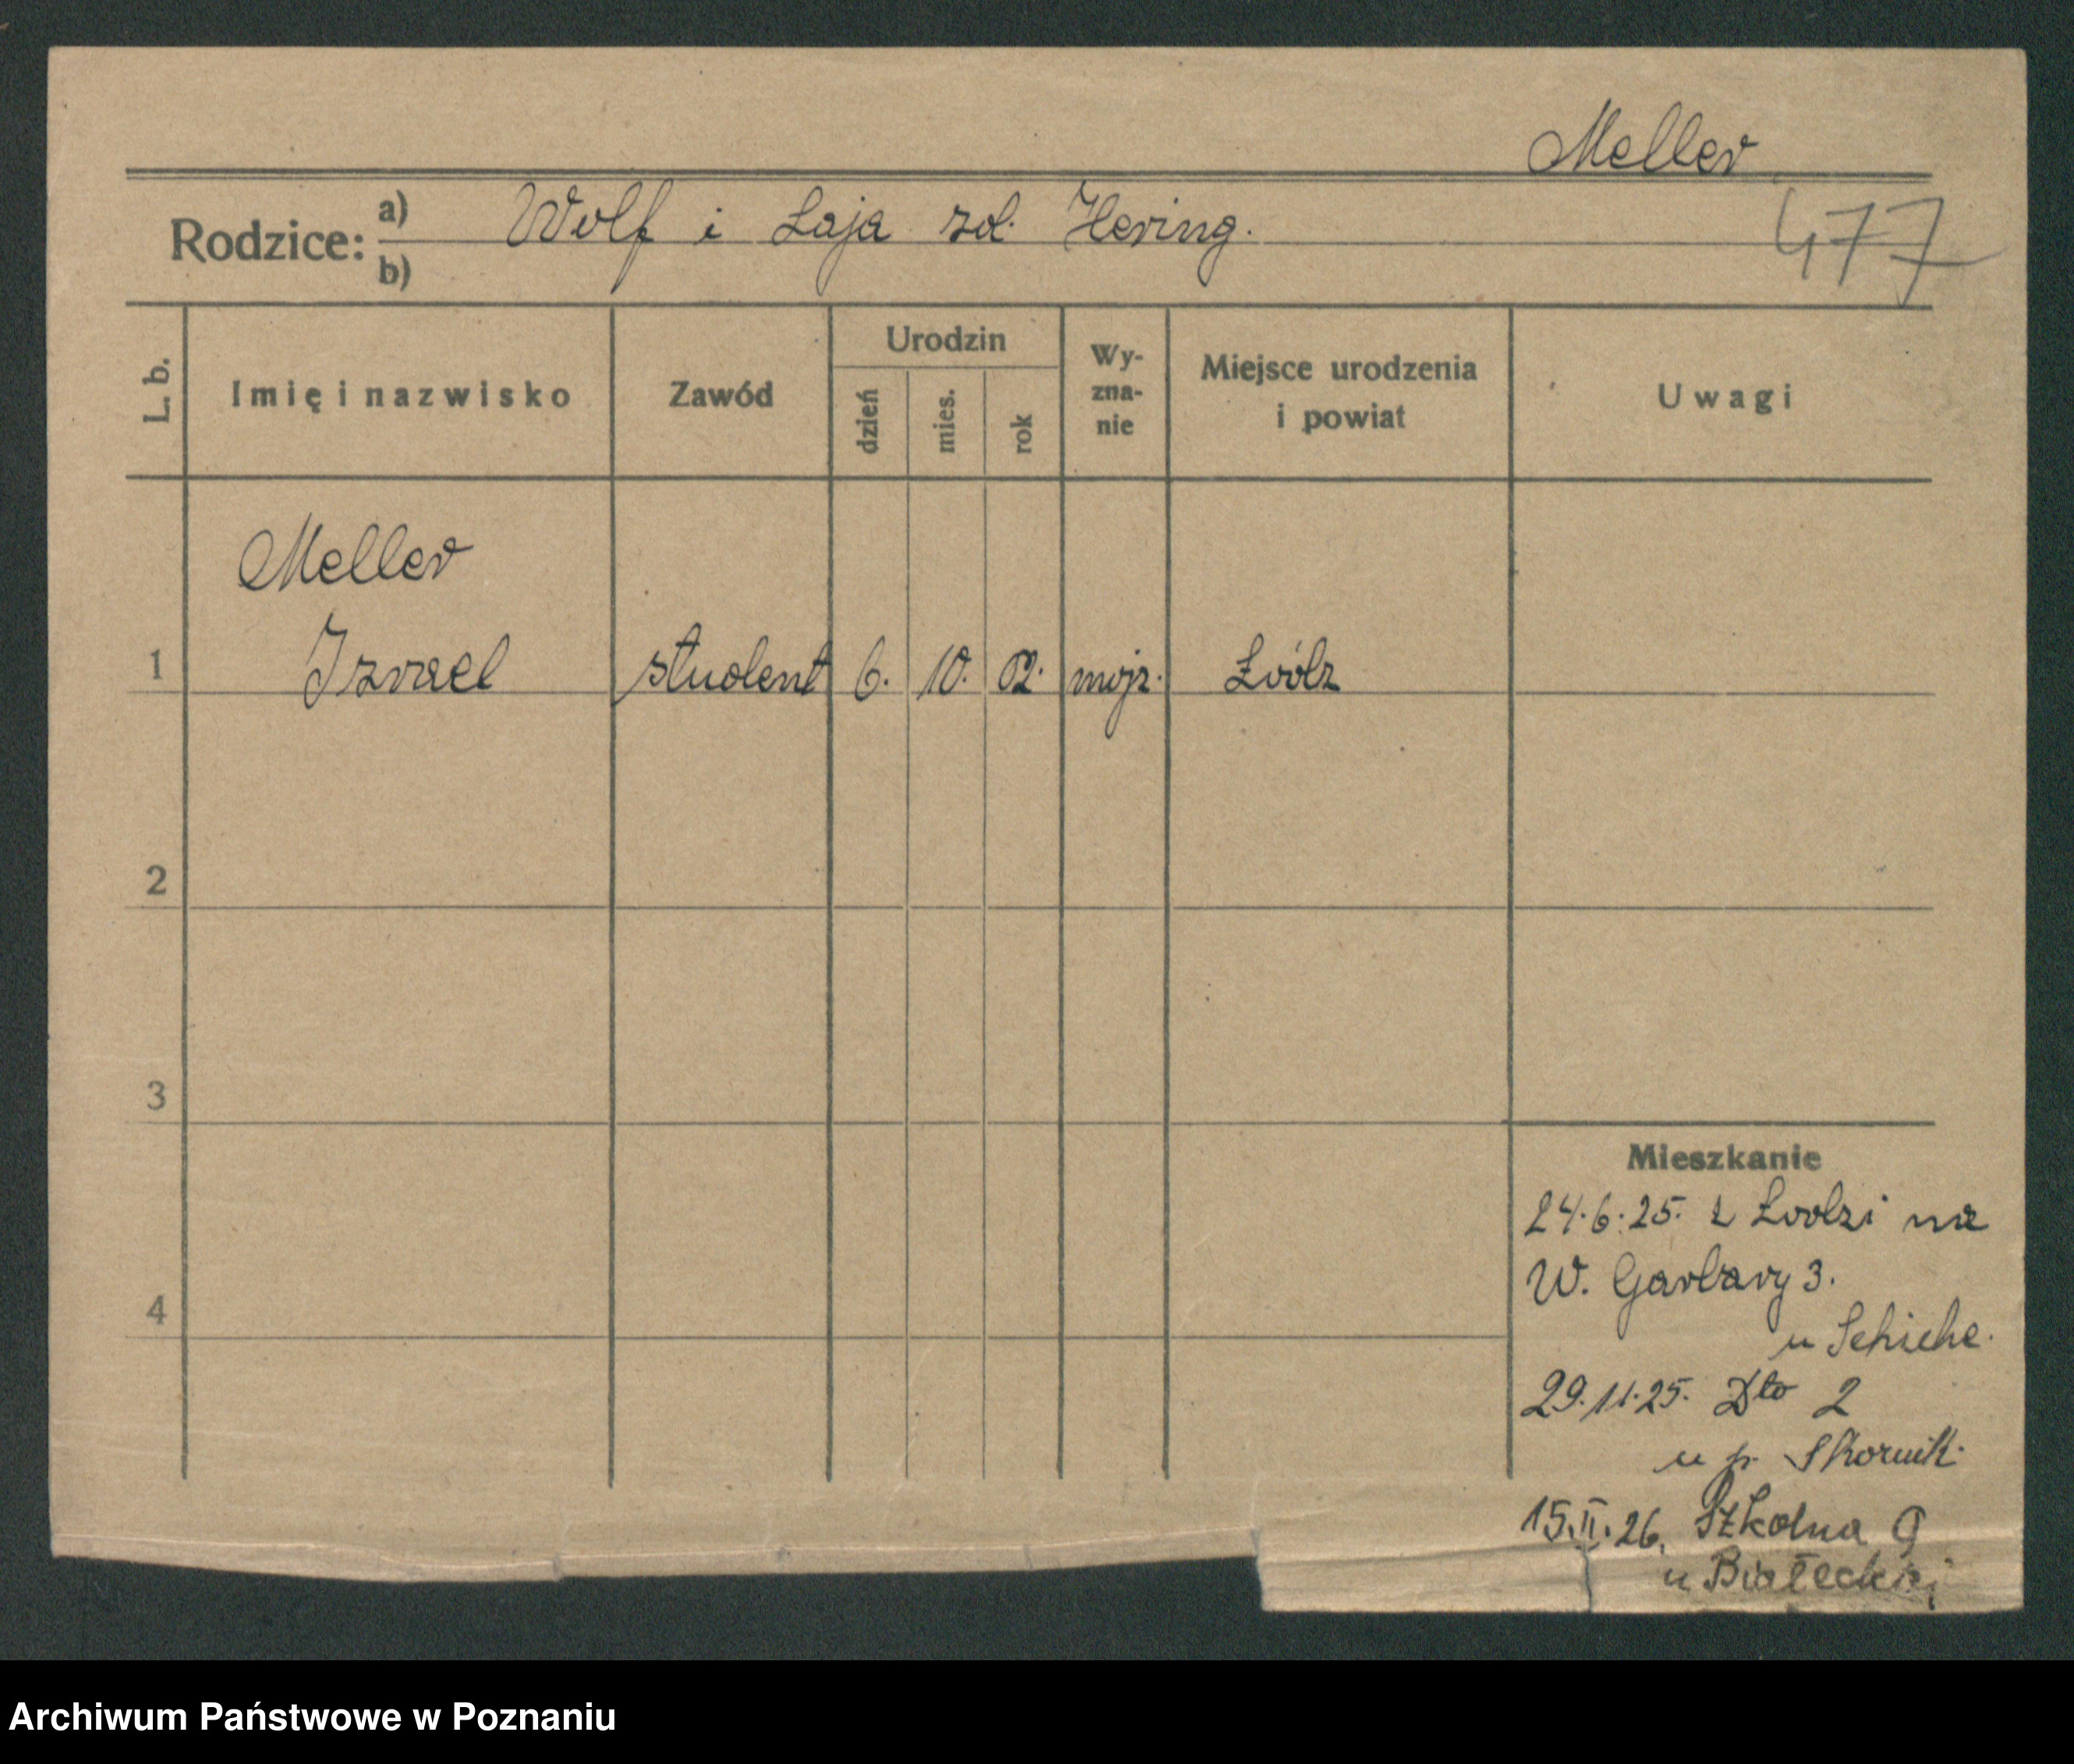 Meller
477
Rodzice: a) Wolf i Łaja zd. Hering.
b)
L. b. Imię i nazwisko Zawód Urodzin dzień mies. rok Wy-zna-nie Miejsce urodzenia i powiat Uwagi
Meller
1 Izrael student 6. 10. 02. mojż. Łódz
2
3
4
Mieszkanie
24.6.25. z Łodzi na
W. Garbary 3.
u
29.11.25. Dto 2
u p. Skornik.
15.II.26. Szkolna 9
u Białeckiej
Archiwum Państwowe w Poznaniu